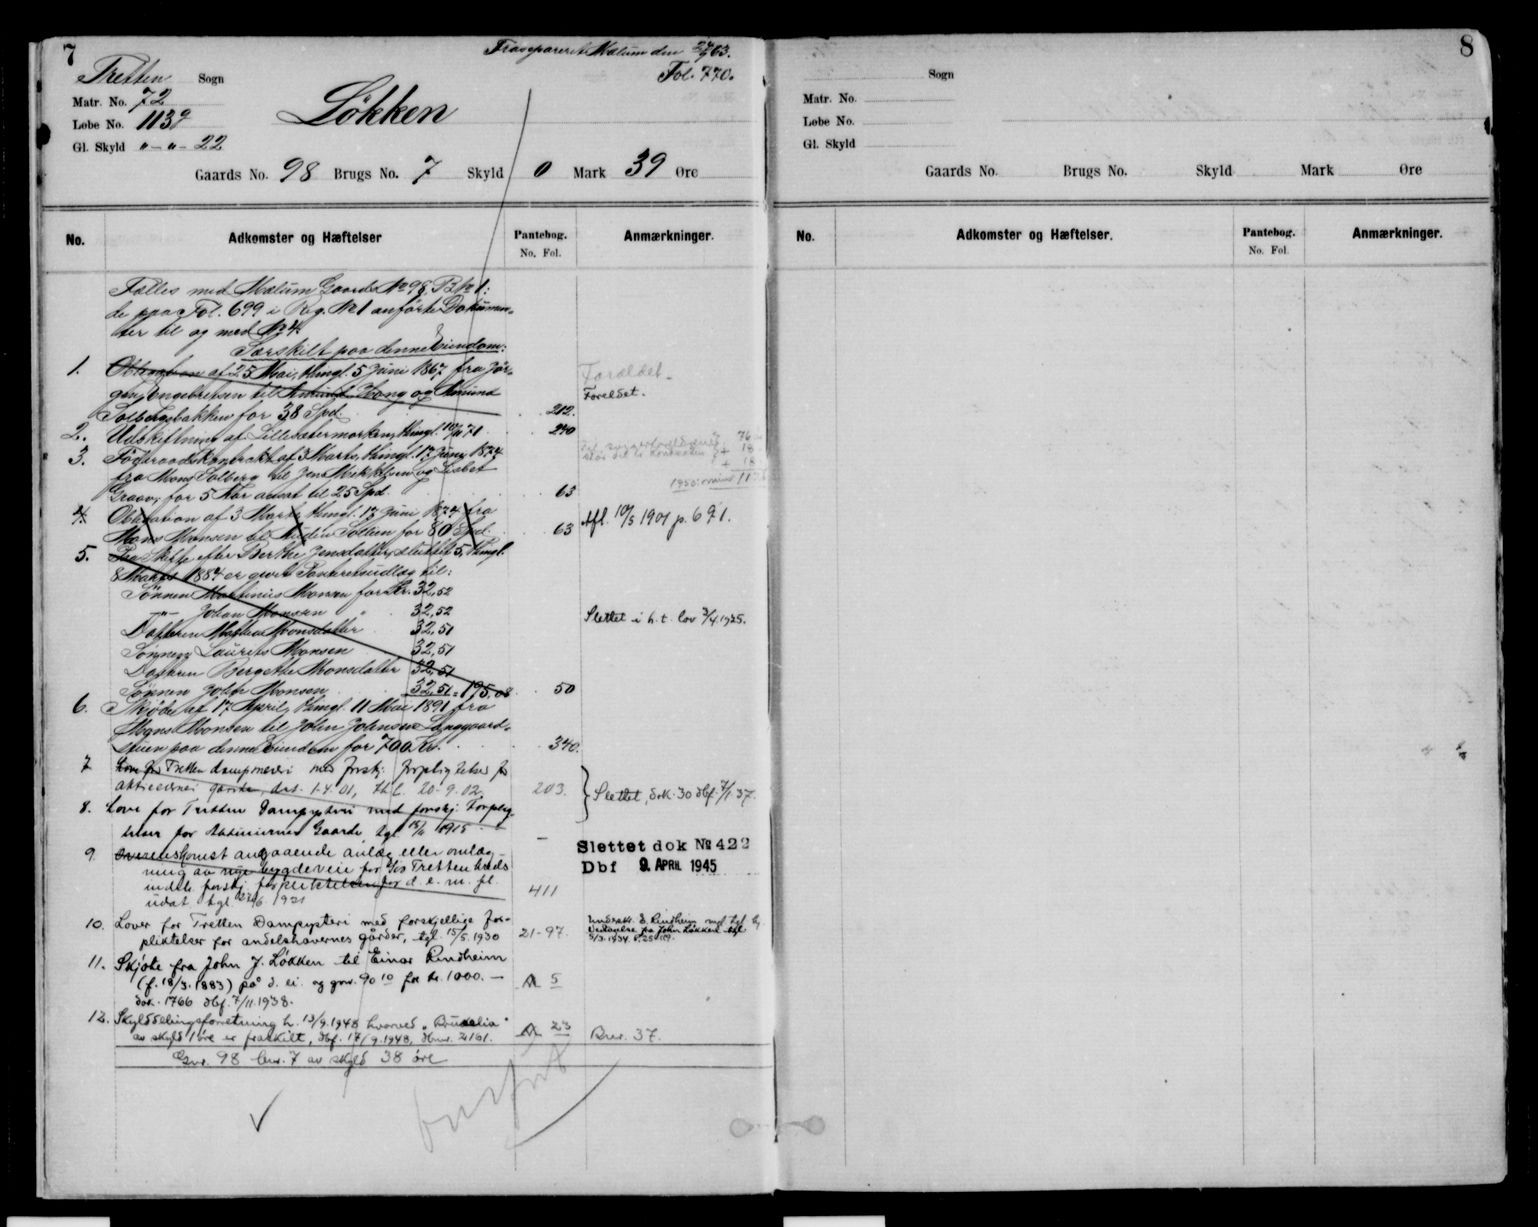 7
Frasepareret Mælum den 24/9 63.
Fol. 770.
Tretten Sogn
Matr. No. 72
Løbe No. 113
Gl. Skyld " - " - 22
Løkken
Gaards No. 98 Brugs No. 7 Skyld 0 Mark 39 Øre
No. Adkomster og Hæftelser Pantebog. No. Fol. Anmærkninger.
Fælles med Mælum Gaards No 98, B. No 1:
de paa Fol. 699 i Reg. No 1 anførte Dokumen-
ter til og med No 4.
Særskilt paa denne Eiendom:
1. Obligation af 25 Mai, thingl. 5 Juni 1867 fra Jør-
gen Engebretsen til Amund og Amund
Solbergsbakken for 38 Spd. 212.
Forældet.
Foreldet.
2. Udskiftning af Lillesætermarken, thingl. 10/11 71 240
3. Födraadskontrakt af 3 Marts, thingl. 17 Juni 1874
fra Mons Solberg til Jens Mikkelsen og Lisbet
Graav, for 5 Aar anset til 25 Spd. 63
4. Obligation af 3 Marts, thingl. 17 Juni 1874 fra
Mons Monsen til Sollien for 80 Spd. 63
Afl. 10/5 1901 p. 691.
5. Paa Skifte efter Berthe Jensdatter, sluttet 5, thingl.
8 Marts 1884 er gjort Panteretsudlæg til:
Sønnen Martinius Monsen for Kr. 32,52
-"- Johan Monsen " 32,52
Datteren Mathea Monsdatter 32,51
Sønnen Laurits Monsen 32,51
Datteren Bergette Monsdatter 32,51
Sønnen Johan Monsen 32,51 = 195,08 50
Slettet i h. t. lov 3/4 1925.
6. Skjøde af 17 April, thingl. 11 Mai 1891 fra
Mons Monsen til John Johnsen Langgaard-
stuen paa denne Eiendom for 700 Kr. 340.
7 Love for Tretten dampmeieri med forskj. forpligtelser for
aktieeiernes gaarde, dat. 1-4-01, thl. 20-9-02. 203.
Slettet, dok. 30 dbf. 7/1 37.
8. Love for Tretten Dampysteri med forskj. Forplig-
telser for Aktieeiernes Gaarde tgl. 15/11 1915 —
9 Overenskomst angaaende anlæg eller omlæg-
ning av nye bygdeveie for Tretten herreds
indeb. forskj. forpliktelser for d. e. m. fl.
udat tgl. 1921 411
Slettet dok No 422
Dbf 9. APRIL 1945
10. Lover for Tretten Dampysteri med forskjellige for-
pliktelser for andelshavernes gårder, tgl. 15/5 1930 21-97.
Underskr. E. Rindheim
11. Skjøte fra John J. Løkken til Einar Rindheim
(f. 18/3. 1883) på d. ei. og gnr. 90 10 for kr. 1000.—
dok. 1766 dbf. 7/11.1938. A 5
12. Skylddelingsforretning h. 13/9.1948 hvorved "Brudelia"
av skyld 1 øre er fraskilt, dbf. 17/9.1948, dbnr. 2161. A 23 Bnr. 37.
Gnr. 98 bnr. 7 av skyld 38 øre
8
Sogn
Matr. No.
Løbe No.
Gl. Skyld
Gaards No. Brugs No. Skyld Mark Øre
No. Adkomster og Hæftelser. Pantebog. No. Fol. Anmærkninger.